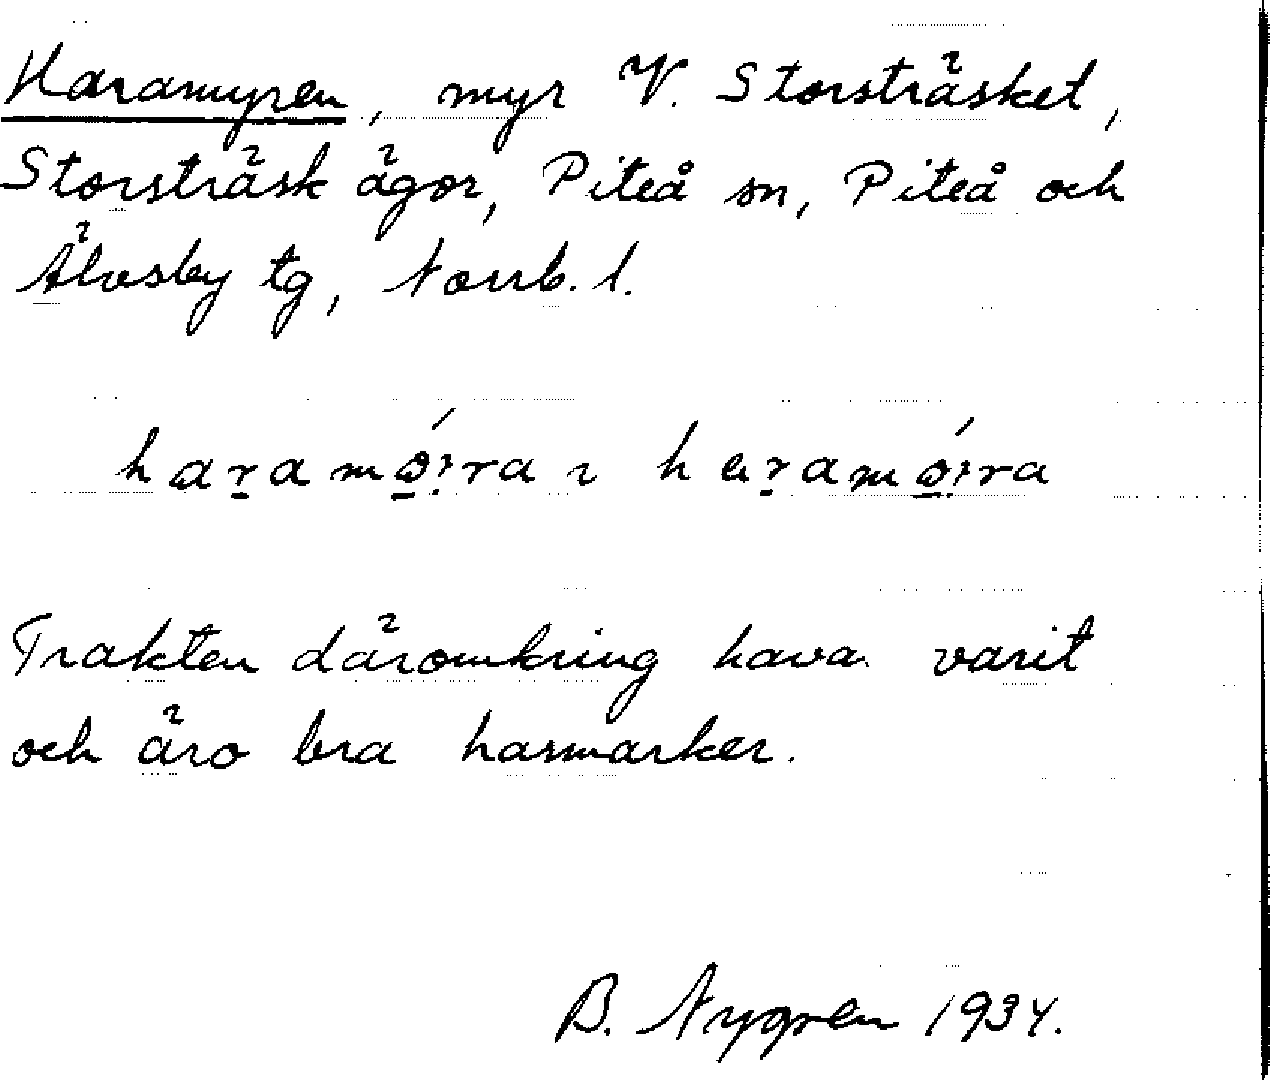 Haramyren, myr V. Storsträsket,
Storsträsk ägor, Piteå sn, Piteå och
Älvsby tg, Norrb. l.
haramǿ:ra ɿ haramǿ:ra
Trakten däromkring hava varit
och äro bra harmarker.
B. Nygren 1934.